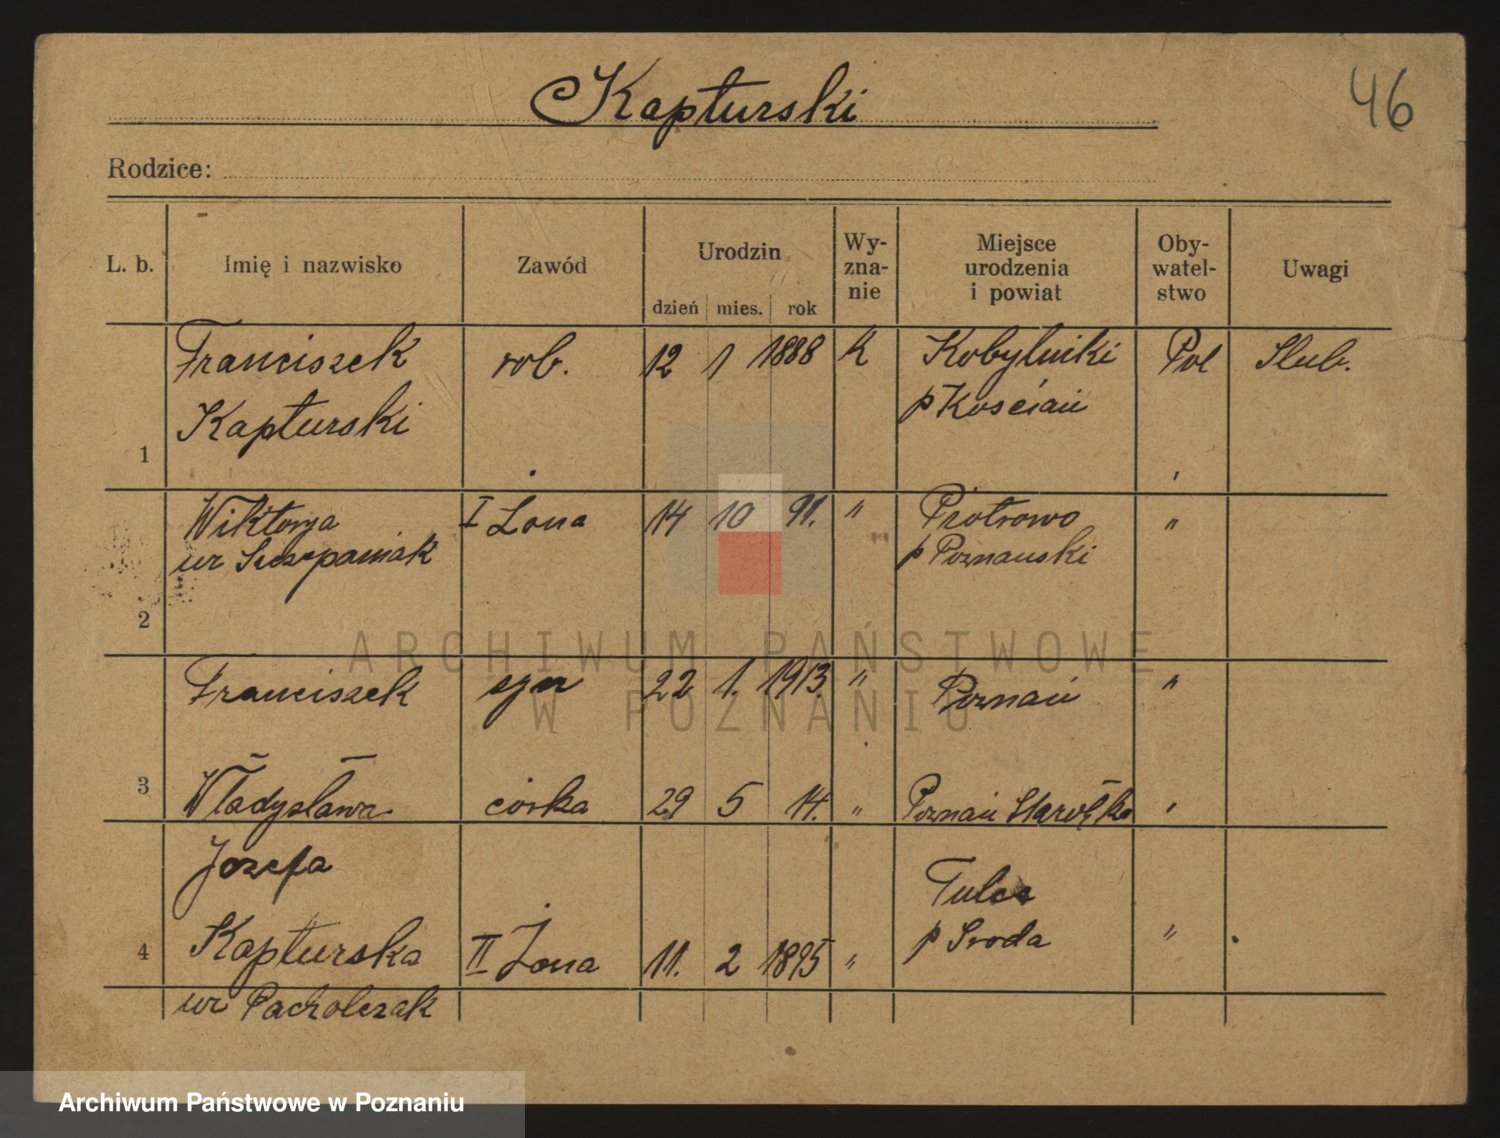 46
Kapturski
Rodzice:
L. b. Imię i nazwisko Zawód Urodzin Wy-zna-nie Miejsce urodzenia i powiat Oby-watel-stwo Uwagi
dzień mies. rok
Franciszek rob. 12 1 1888 k Kobylniki Pol Slub.
Kapturski p Kościan
1
Wiktorya I Żona 14 10 91. " Piotrowo "
ur Szczepaniak p Poznanski
2
ARCHIWUM PAŃSTWOWE
W POZNANIU
Franciszek syn 22 1. 1913. " Poznań "
3
Władysława córka 29 5 14. " Poznań Starołęka "
Jozefa
Tulce
Kapturska II Żona 11. 2 1895 " p Sroda "
4
ur Pacholczak
Archiwum Państwowe w Poznaniu